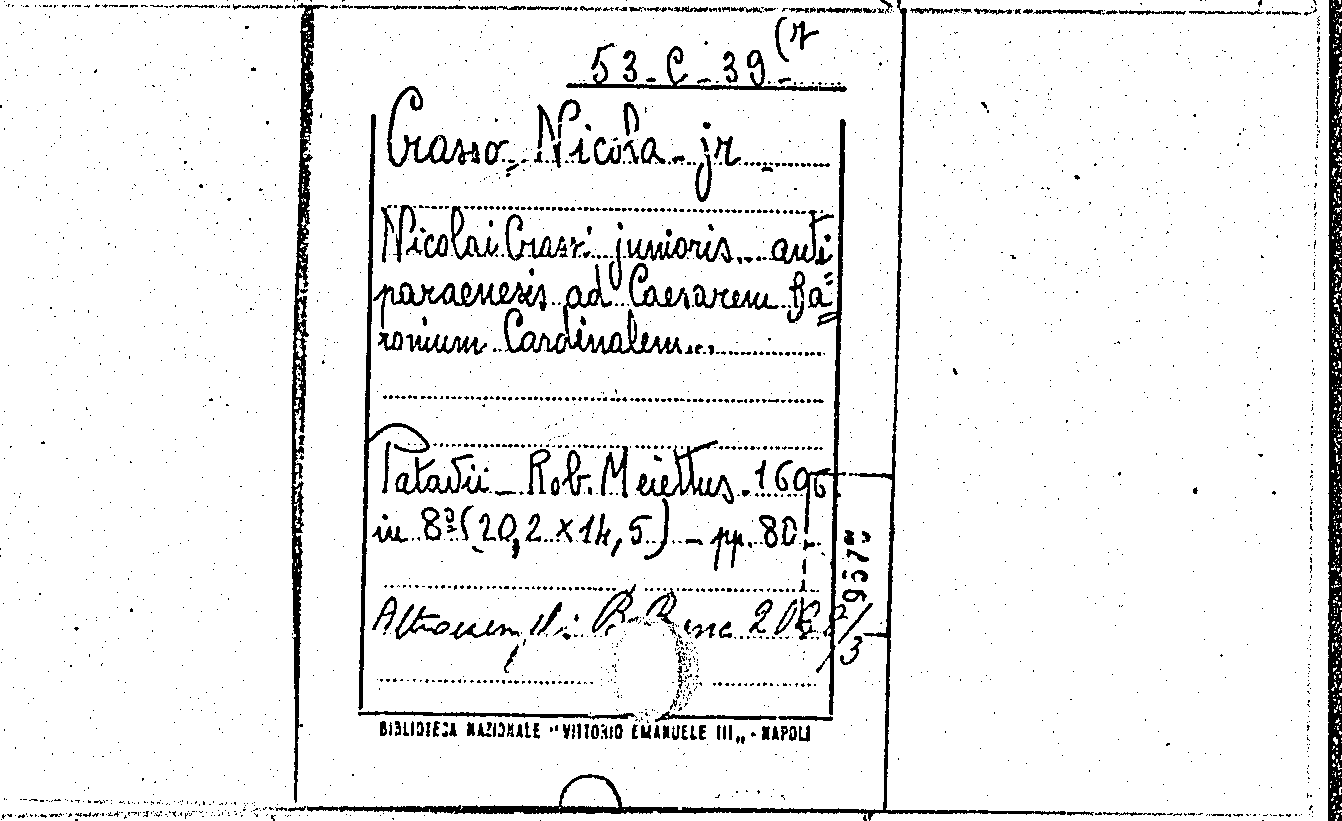 53-C-39 (7
Crasso, Nicola jr.
Nicolai Crassi junioris... anti
paraenesis ad Caesarem Ba=
ronium Cardinalem...
Patavii - Rob. Meiettus. 1606.
in 8º (20,2 x 14,5) - pp. 80.
Altro esempl:
BIBLIOTECA NAZIONALE "VITTORIO EMANUELE III„ - NAPOLI